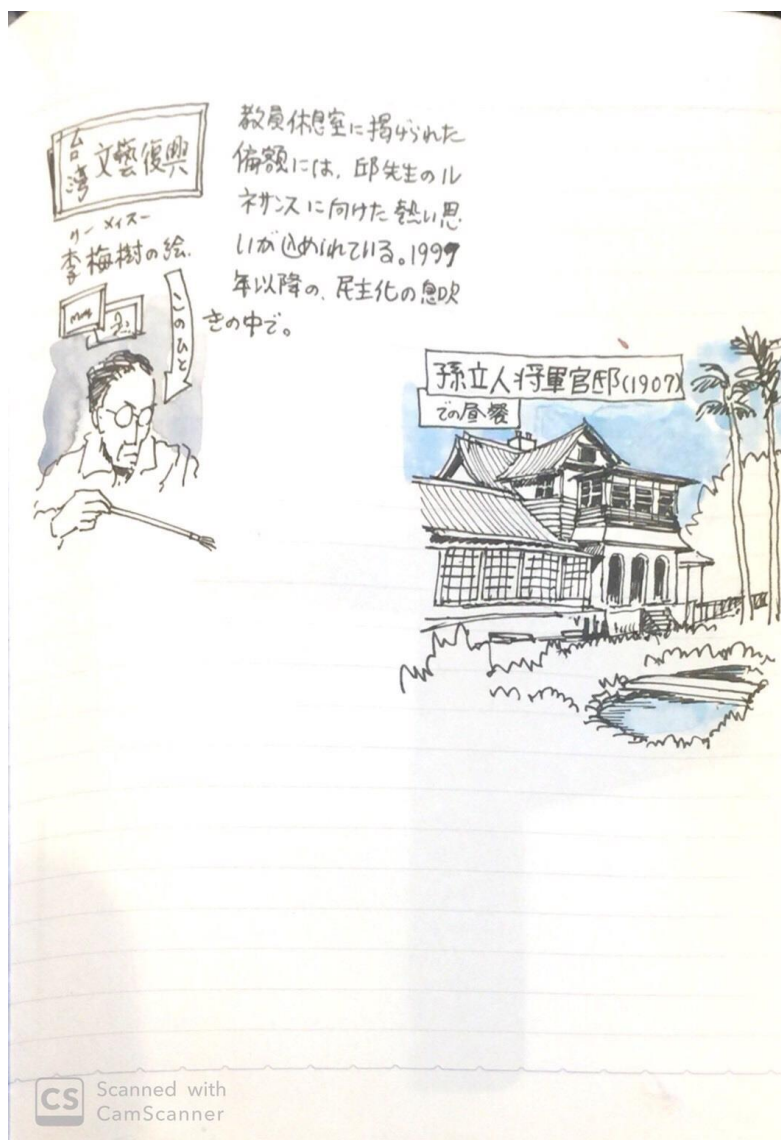 台湾 文藝復興
リー メイスー
李梅樹の絵
このひと
教員休息室に掲げられた
偏額には、邱先生のル
ネサンスに向けた熱い思
いが込められている。1999
年以降の、民主化の息吹
きの中で。
孫立人将軍官邸(1907)
での昼餐
CS Scanned with
CamScanner